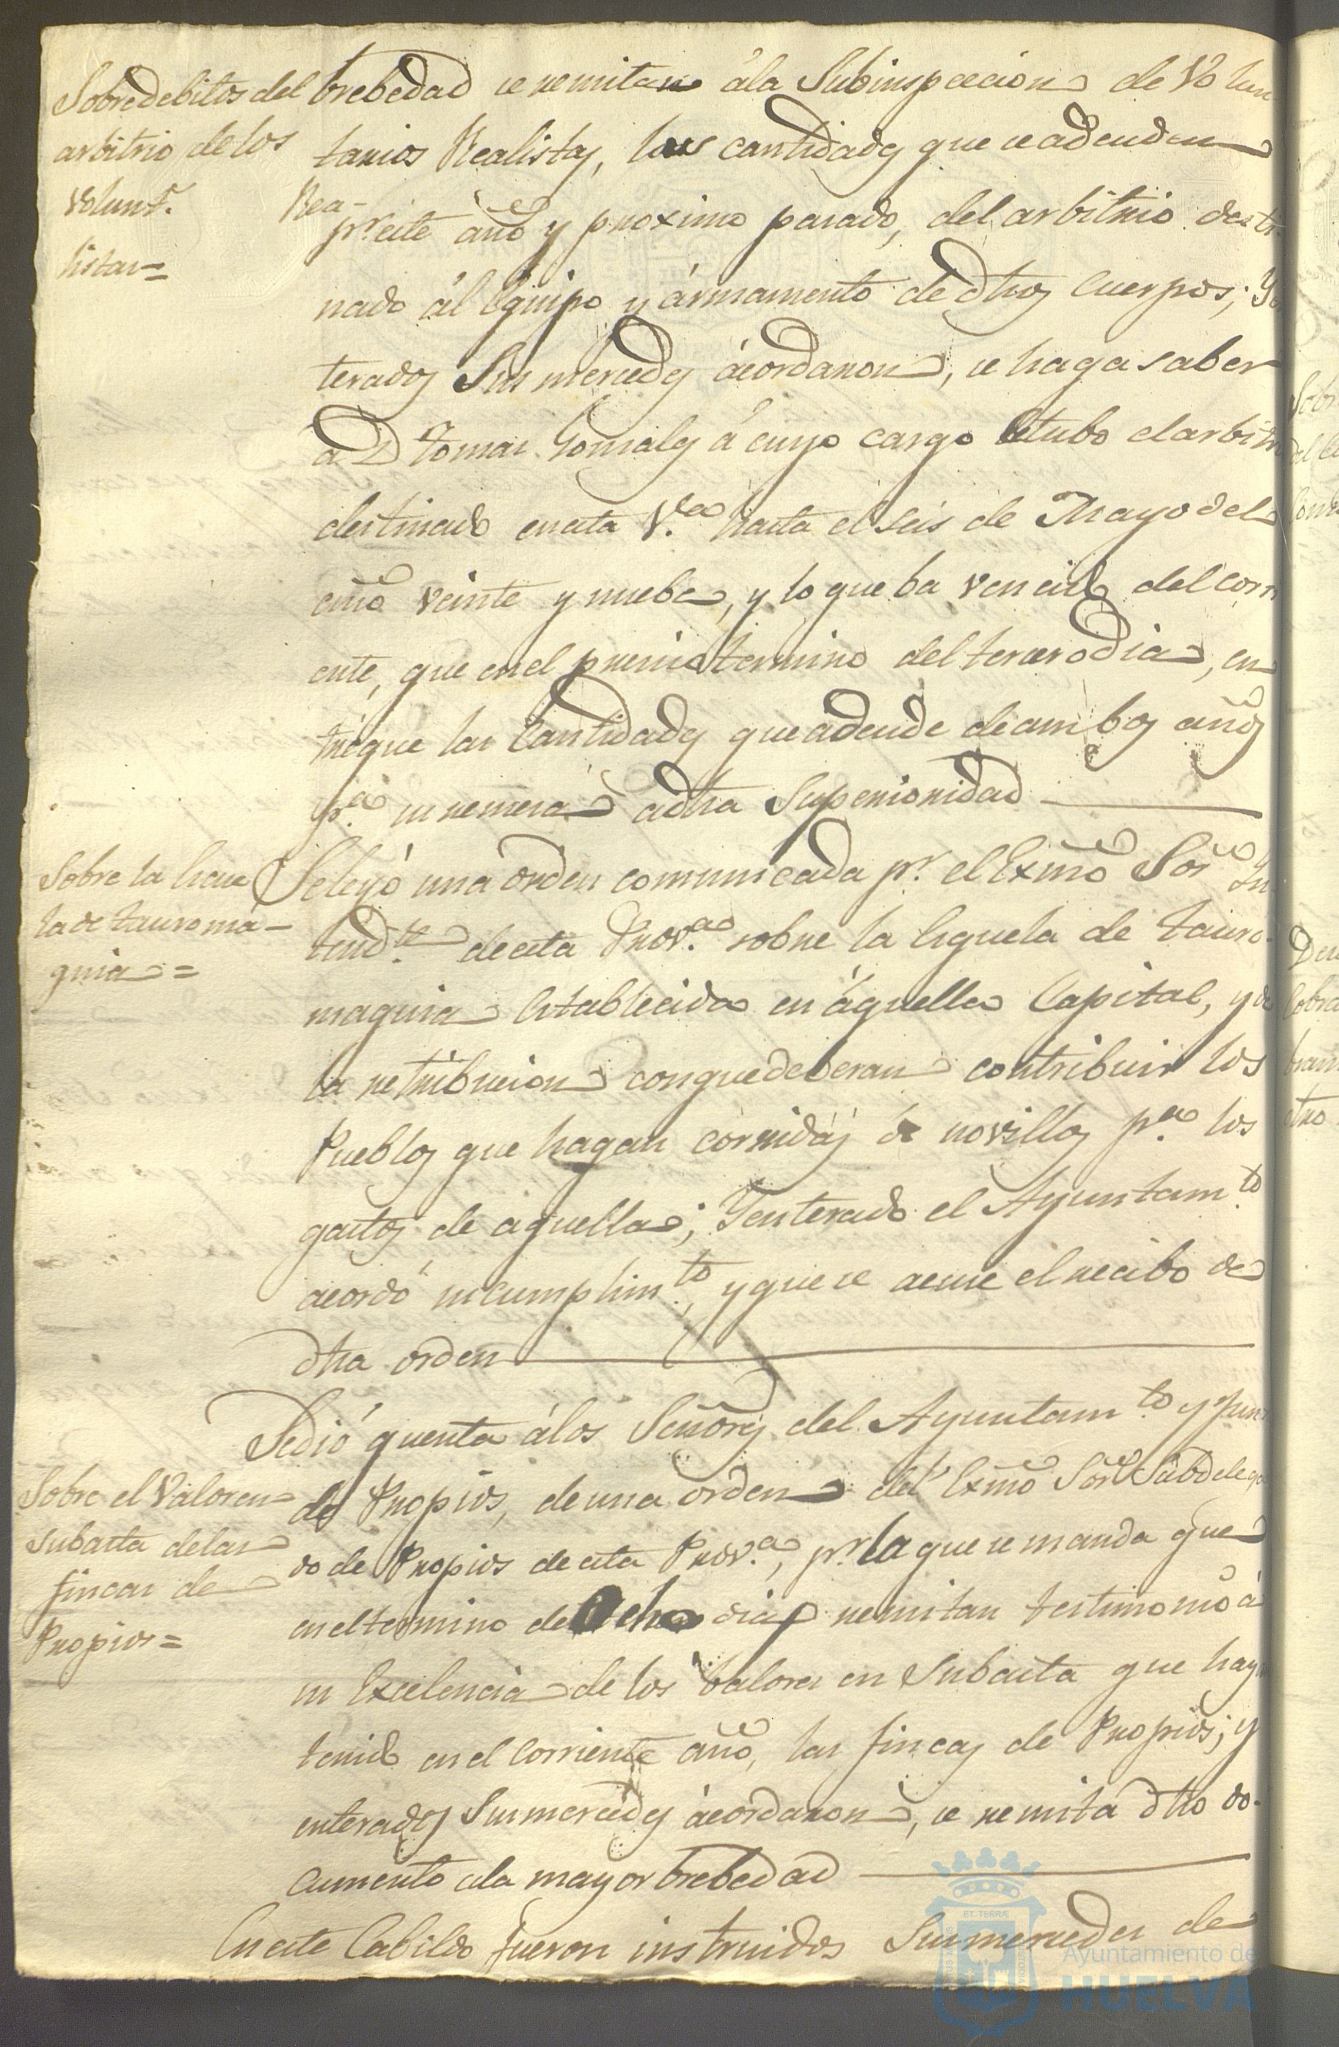 Sobre debitos del
arbitrio de los
Volunt.s Rea-
listas=
brebedad se remitan á la Subinspeccion de Volun-
tarios Realistas, las cantidades que se adeuden
pr. este año y proximo pasado, del arbitrio desti-
nado ál Equipo y ármamento de dhos Cuerpos; Yn
terados Sus mercedes ácordaron, se haga saber
a D Tomas Gonzales á cuyo cargo estubo el arbitrio
destinado en esta V.a hasta el seis de Mayo del
año veinte y nuebe, y lo que ha vencido del corri
ente, que en el preciso termino del tercero dia, en
tregue las Cantidades que adeude de ambos años
p.a su remesa á dha Superioridad
Sobre la Escue
la de tauroma-
quia=
Se leyó una orden comunicada pr. el Exmo Sor Yn
tend.te de esta Prov.a sobre la Esquela de tauro-
maquia Establecida en áquella Capital, y de
la retribucion con que deberan contribuir los
Pueblos que hagan corridas de novillos p.a los
gastos de aquella; Y enterado el Ayuntam.to
acordó su cumplim.to, y que se acuse el recibo de
dha orden
Sobre el Valor en
Subasta de las
fincas de
Propios=
Se dió quenta á los Señores del Ayuntam.to y Jun
de Propios, de una orden del Exmo Sor Subdelega
do de Propios de esta Prov.a, pr. la que se manda que
en el termino de Ocho dias remitan testimonio á
su Excelencia de los Valores en Subasta que hay
tenido en el Corriente año, las fincas de Propios; y
enterados Sus mercedes ácordaron, se remita dho do-
cumento á la mayor brebedad
En este Cabildo fueron instruidos Sus mercedes de
ET TERRÆ
Ayuntamiento de
HUELVA